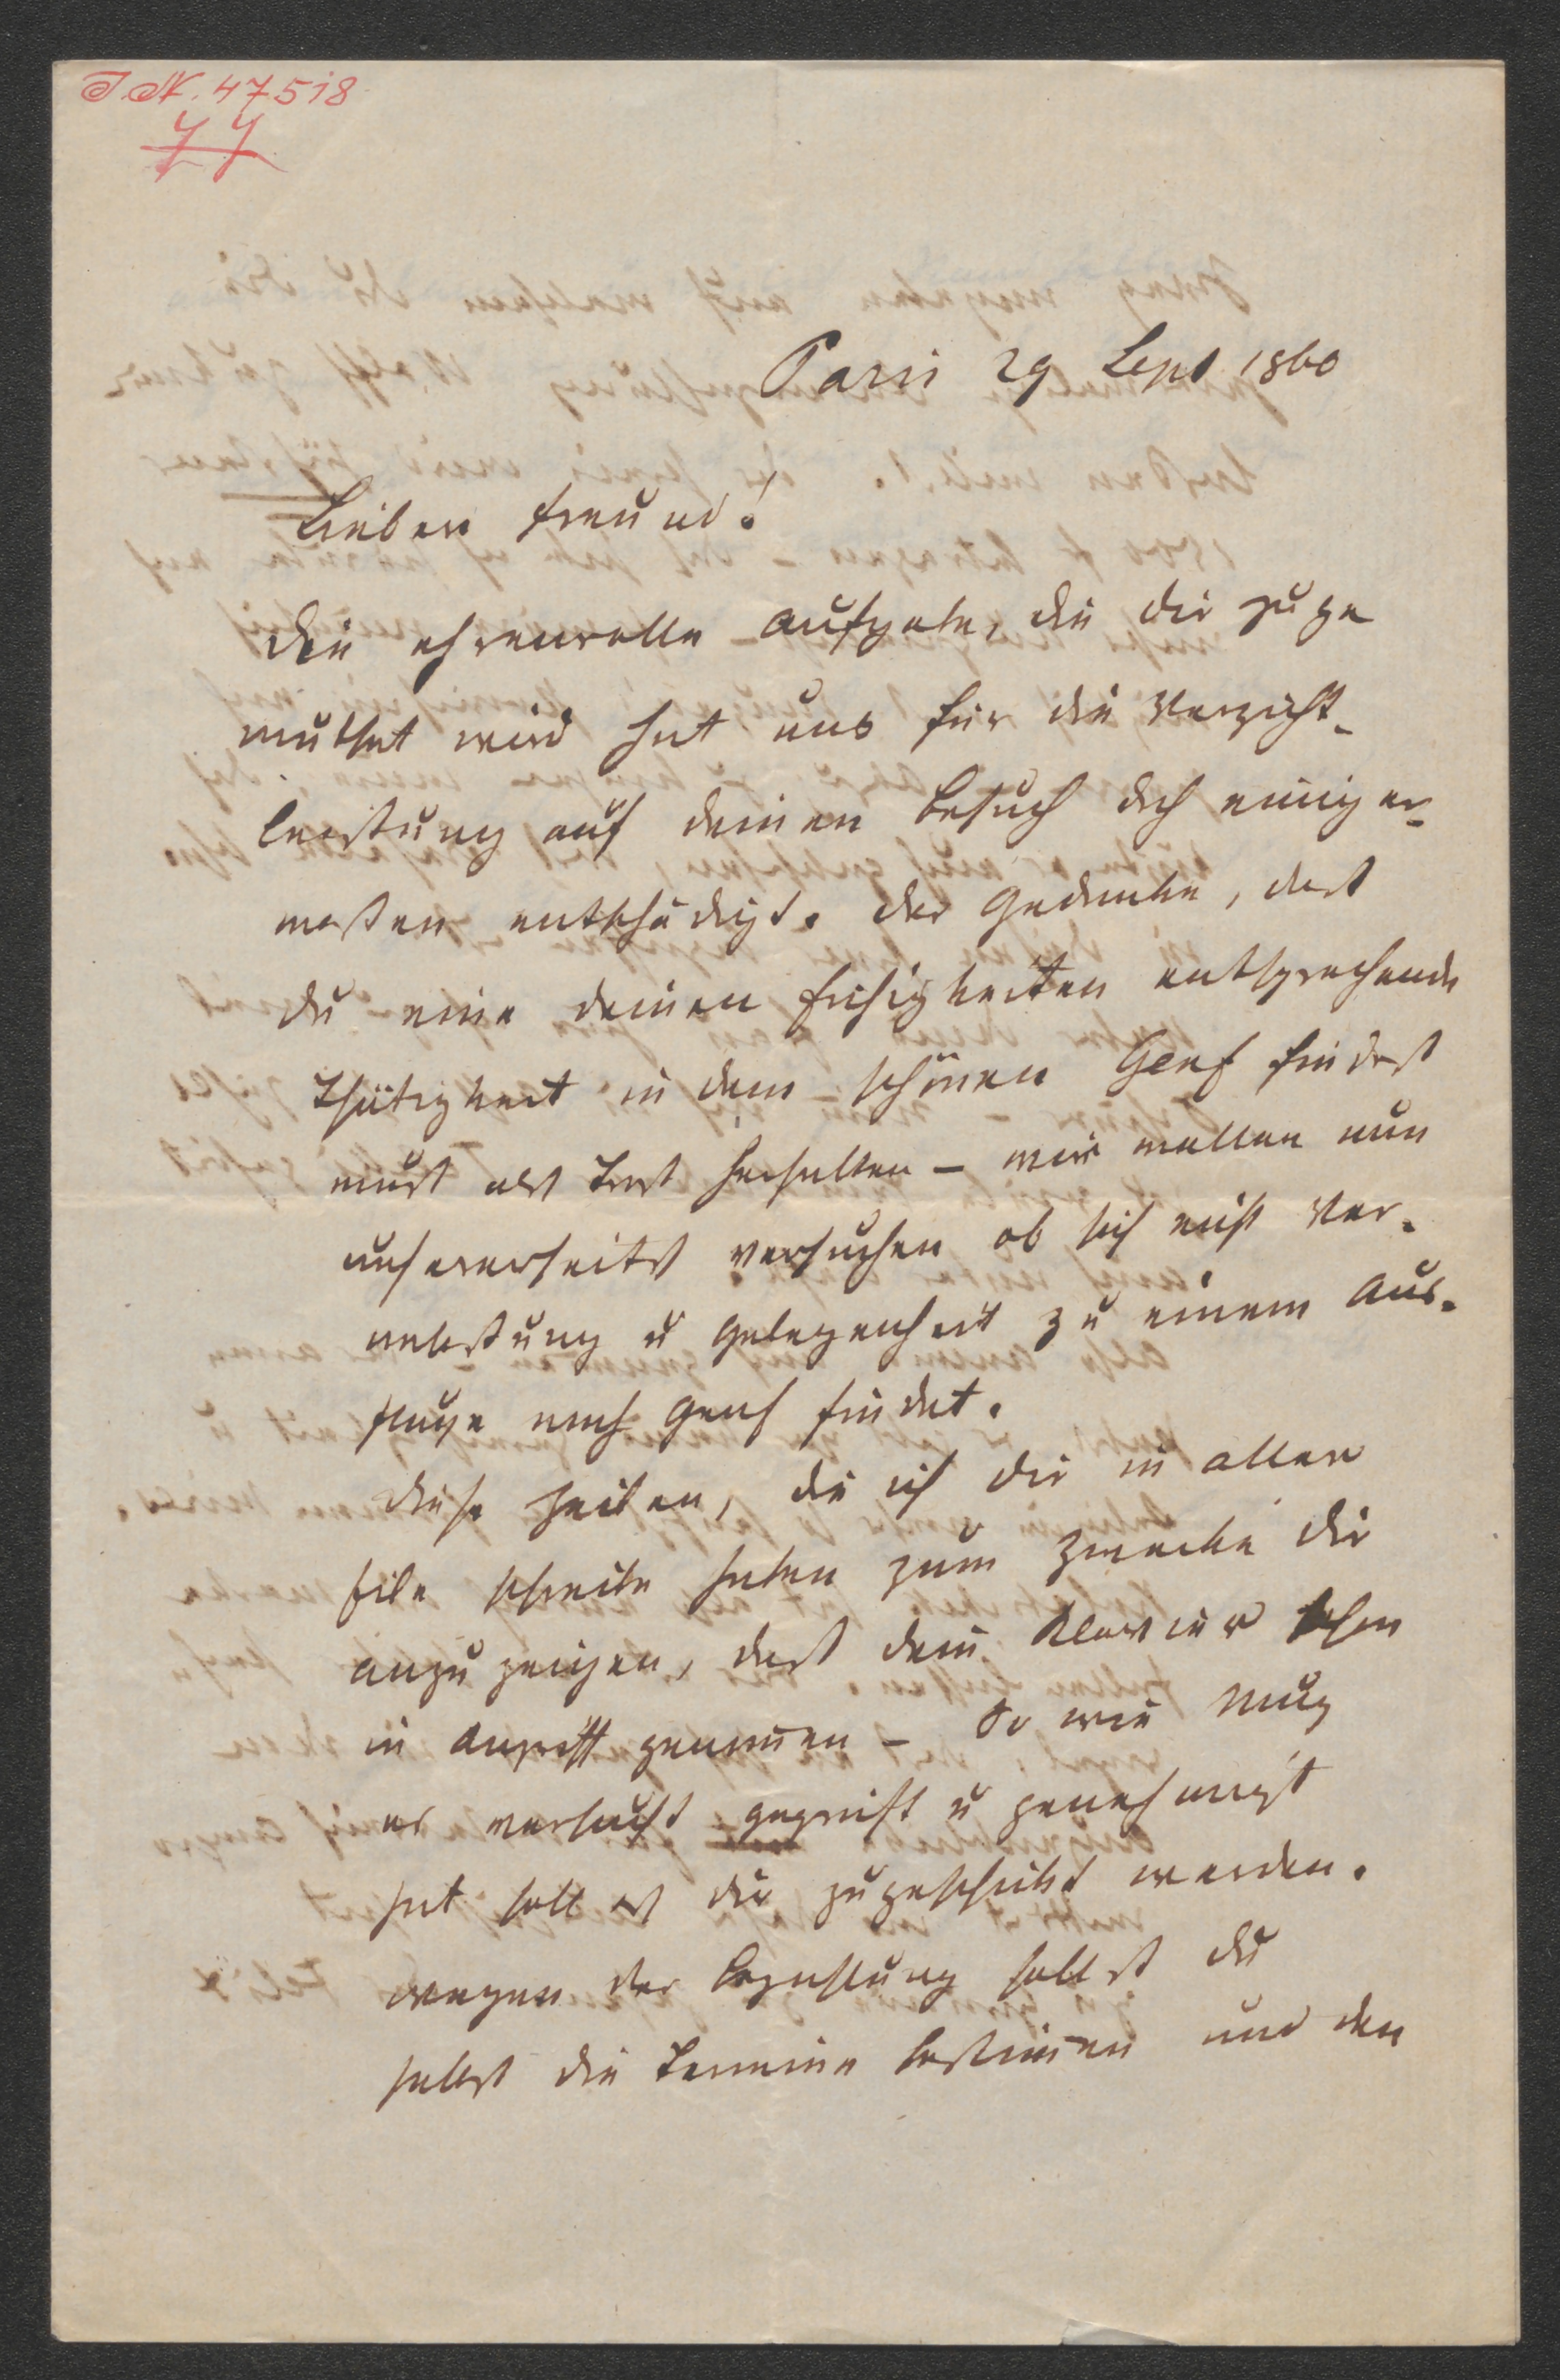 I.N. 47518
77
Paris 29 Sept 1860
Lieber Freund!
Die ehrenvolle Aufgabe, die dir zuge
muthet wird hat uns für die Verzicht-
leistung auf deinen Besuch doch einiger-
maßen entschädigt. Der Gedanke, daß
du eine deinen Fähigkeiten entsprechende
Thätigkeit in dem schönen Genf findest
muß als Trost herhalten – wir wollen nun
unsererseits versuchen ob sich nicht Ver-
anlaßung u Gelegenheit zu einem Aus-
fluge nach Genf findet.
Diese Zeilen, die ich dir in aller
Eile schreibe haben zum Zwecke dir
anzuzeigen, daß dein Klavier schon
in Angriff genommen – So wie
er versucht geprüft u genehmigt
hat soll es dir zugeschickt werden.
Wegen der Bezahlung sollst du
selbst die Termine bestimmen und den